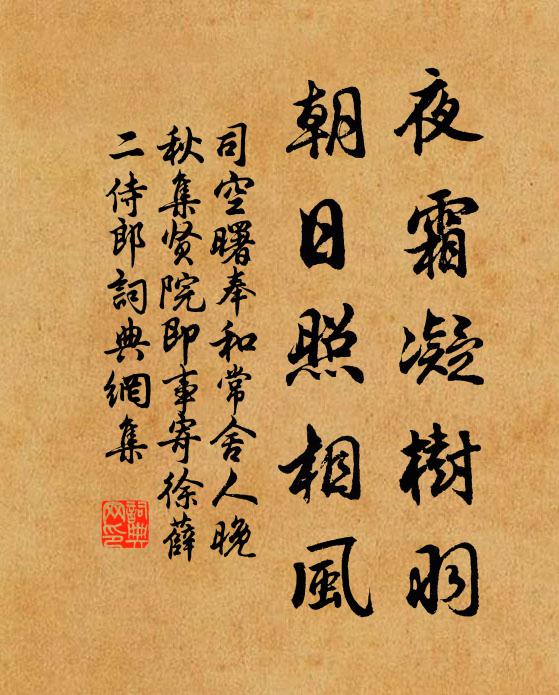 夜霜凝樹羽
朝日照相風
司空曙奉和常舍人晚
秋集贤院即事寄徐薛
二侍郎詞典網集
詞典
网印